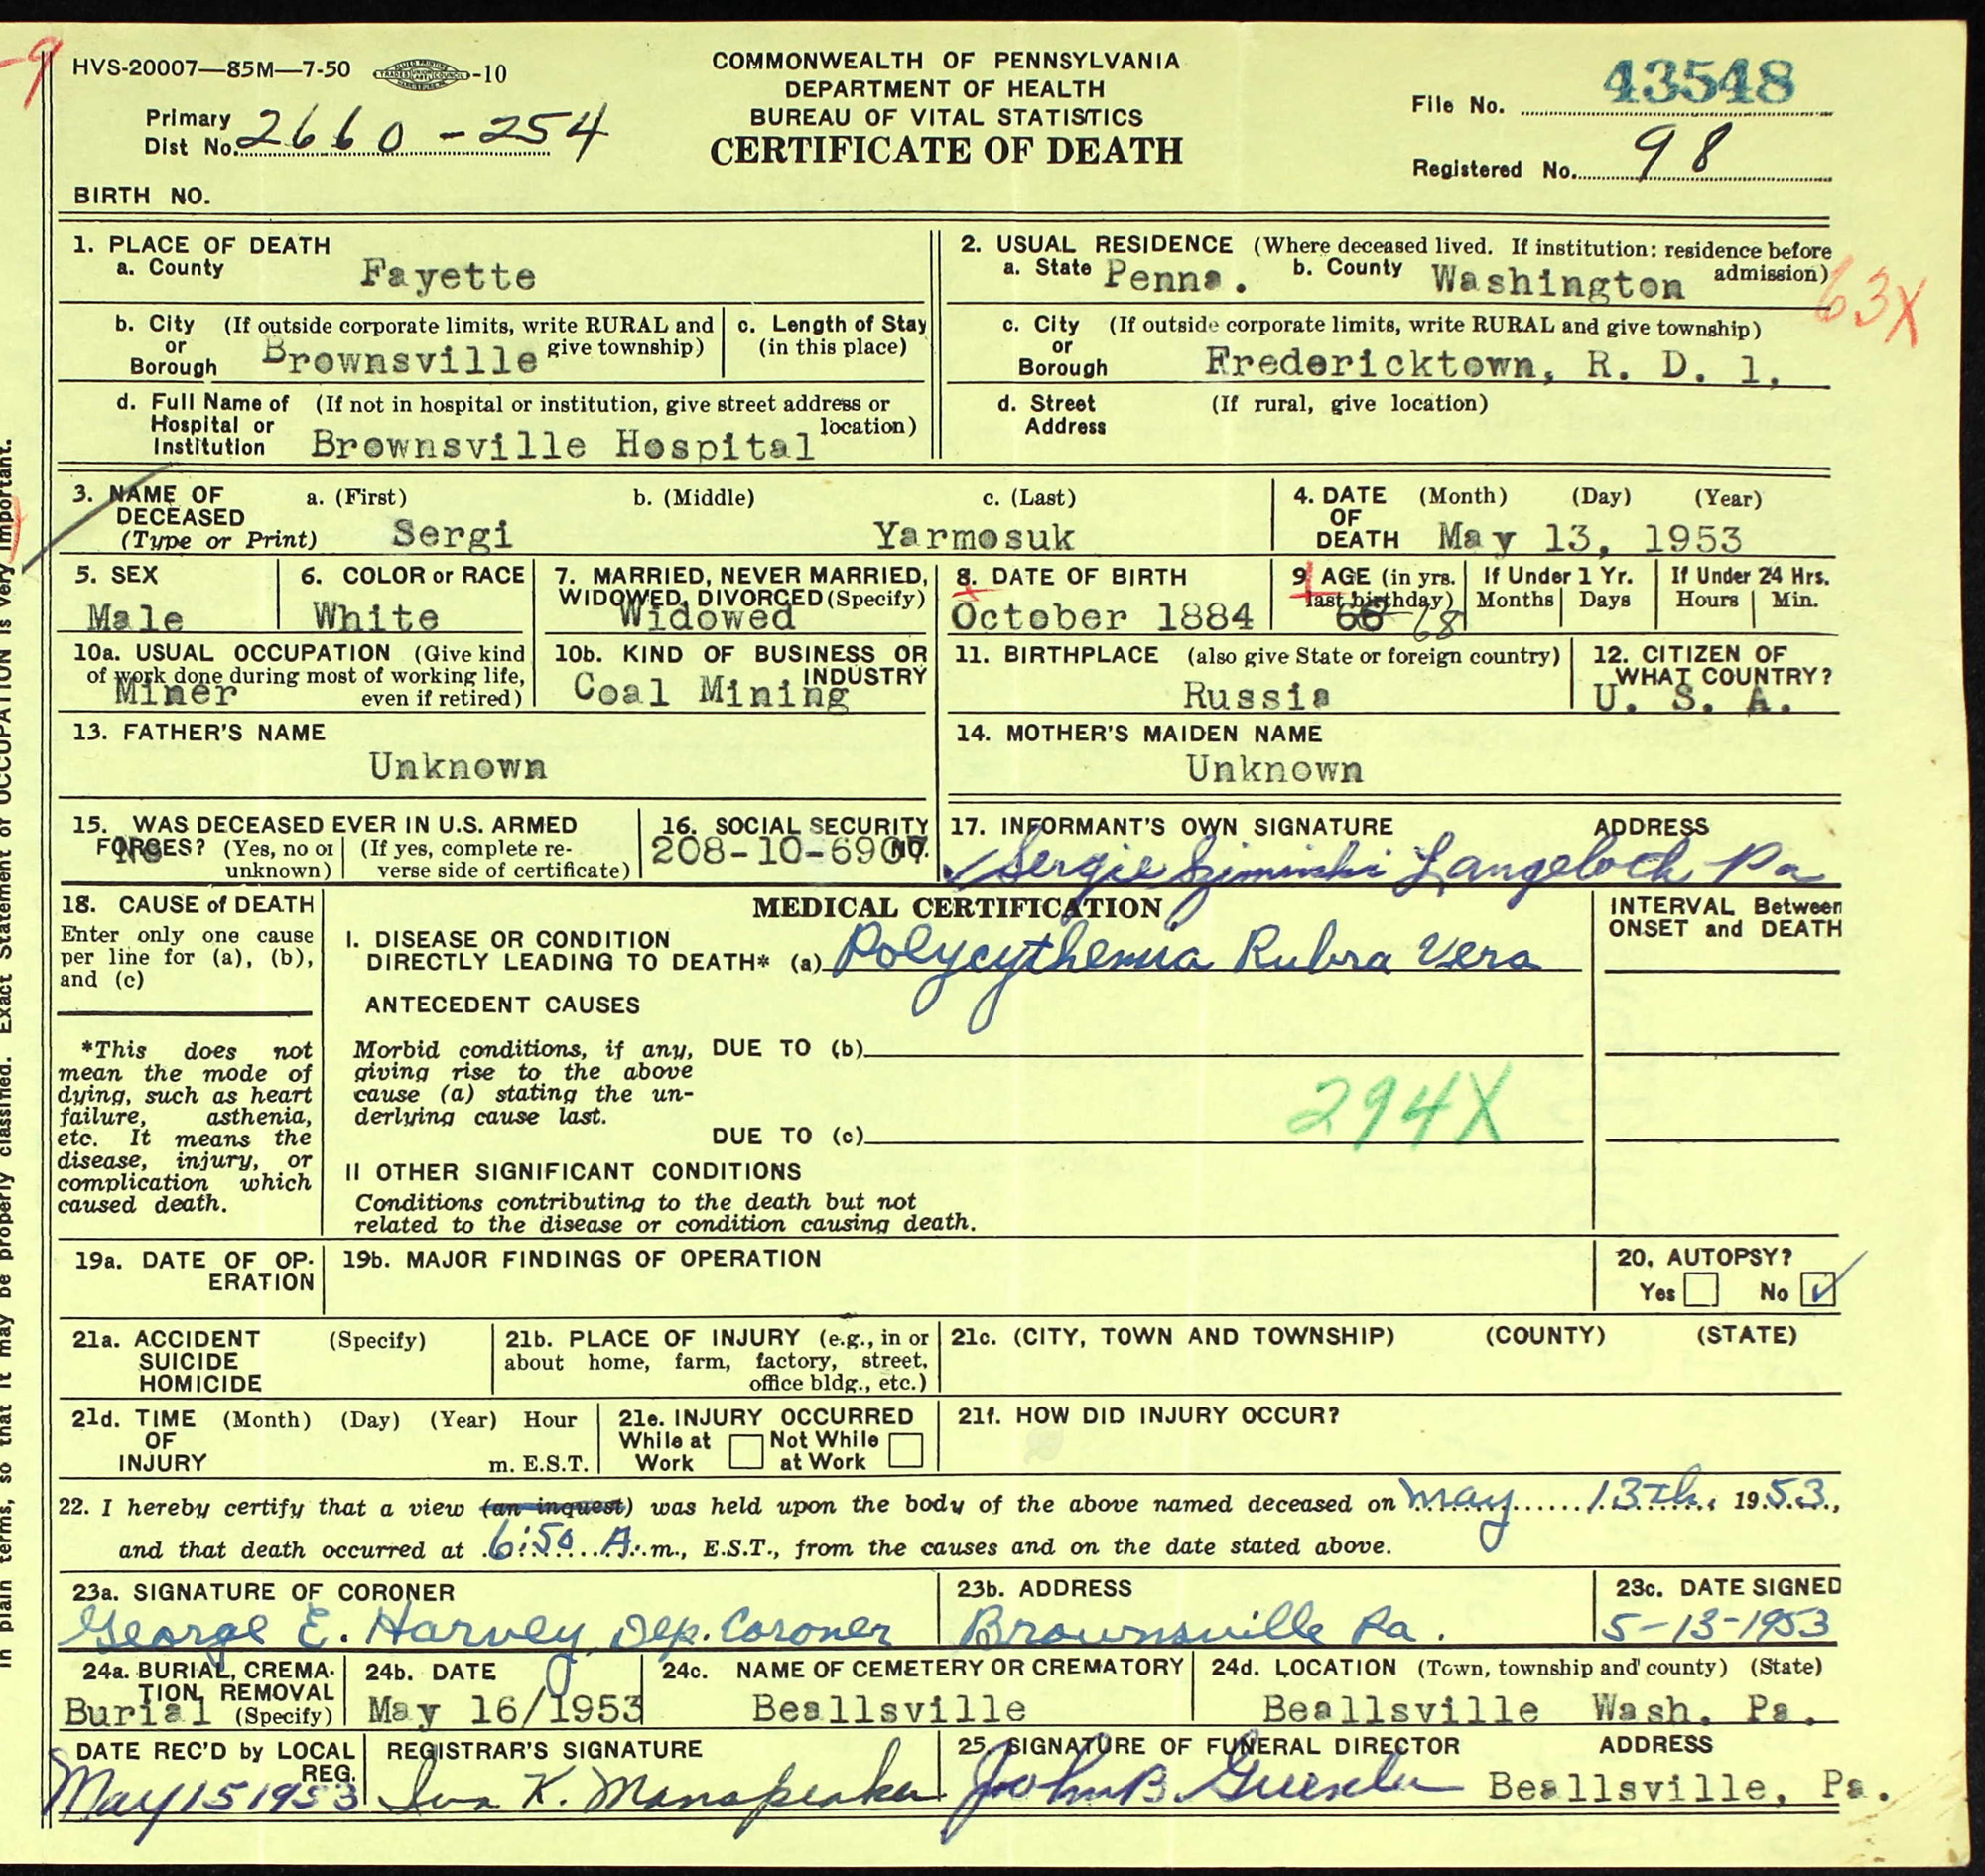 HVS-20007—85M—7-50 -10
COMMONWEALTH OF PENNSYLVANIA
DEPARTMENT OF HEALTH
BUREAU OF VITAL STATISTICS
CERTIFICATE OF DEATH
File No. 43548
Primary Dist No. 2660-254
Registered No. 98
BIRTH NO.
1. PLACE OF DEATH
a. County Fayette
2. USUAL RESIDENCE (Where deceased lived. If institution: residence before admission)
a. State Penna. b. County Washington
63X
b. City or Borough (If outside corporate limits, write RURAL and give township) Brownsville
c. Length of Stay (in this place)
c. City or Borough (If outside corporate limits, write RURAL and give township)
Fredericktown, R. D. 1,
d. Full Name of Hospital or Institution (If not in hospital or institution, give street address or location)
Brownsville Hospital
d. Street Address (If rural, give location)
3. NAME OF DECEASED (Type or Print)
a. (First) b. (Middle) c. (Last)
Sergi Yarmosuk
4. DATE OF DEATH (Month) (Day) (Year)
May 13, 1953
5. SEX
Male
6. COLOR or RACE
White
7. MARRIED, NEVER MARRIED, WIDOWED, DIVORCED (Specify)
Widowed
8. DATE OF BIRTH
October 1884
9. AGE (in yrs. last birthday)
68
If Under 1 Yr.
Months Days
If Under 24 Hrs.
Hours Min.
10a. USUAL OCCUPATION (Give kind of work done during most of working life, even if retired)
Miner
10b. KIND OF BUSINESS OR INDUSTRY
Coal Mining
11. BIRTHPLACE (also give State or foreign country)
Russia
12. CITIZEN OF WHAT COUNTRY?
U. S. A.
13. FATHER'S NAME
Unknown
14. MOTHER'S MAIDEN NAME
Unknown
15. WAS DECEASED EVER IN U.S. ARMED FORCES? (Yes, no or unknown) (If yes, complete reverse side of certificate)
No
16. SOCIAL SECURITY NO.
208-10-6907
17. INFORMANT'S OWN SIGNATURE ADDRESS
Sergie Langeloth Pa
18. CAUSE of DEATH
Enter only one cause per line for (a), (b), and (c)
MEDICAL CERTIFICATION
INTERVAL Between ONSET and DEATH
I. DISEASE OR CONDITION
DIRECTLY LEADING TO DEATH* (a) Polycythemia Rubra Vera
ANTECEDENT CAUSES
*This does not mean the mode of dying, such as heart failure, asthenia, etc. It means the disease, injury, or complication which caused death.
Morbid conditions, if any, giving rise to the above cause (a) stating the underlying cause last.
DUE TO (b)
294X
DUE TO (c)
II OTHER SIGNIFICANT CONDITIONS
Conditions contributing to the death but not
related to the disease or condition causing death.
19a. DATE OF OPERATION
19b. MAJOR FINDINGS OF OPERATION
20. AUTOPSY?
Yes No ✓
21a. ACCIDENT SUICIDE HOMICIDE (Specify)
21b. PLACE OF INJURY (e.g., in or about home, farm, factory, street, office bldg., etc.)
21c. (CITY, TOWN AND TOWNSHIP) (COUNTY) (STATE)
21d. TIME OF INJURY (Month) (Day) (Year) Hour
m. E.S.T.
21e. INJURY OCCURRED
While at Work Not While at Work
21f. HOW DID INJURY OCCUR?
22. I hereby certify that a view (an inquest) was held upon the body of the above named deceased on May 13th, 1953,
and that death occurred at 6:50 A. m., E.S.T., from the causes and on the date stated above.
23a. SIGNATURE OF CORONER
George E. Harvey, Dep. Coroner
23b. ADDRESS
Brownsville Pa.
23c. DATE SIGNED
5-13-1953
24a. BURIAL, CREMATION, REMOVAL (Specify)
Burial
24b. DATE
May 16/1953
24c. NAME OF CEMETERY OR CREMATORY
Beallsville
24d. LOCATION (Town, township and county) (State)
Beallsville Wash. Pa.
DATE REC'D by LOCAL REG.
May 15 1953
REGISTRAR'S SIGNATURE
K. Manspeaker
25. SIGNATURE OF FUNERAL DIRECTOR ADDRESS
John B. Beallsville, Pa.
in plain terms, so that it may be properly classified. Exact Statement of OCCUPATION is very important.